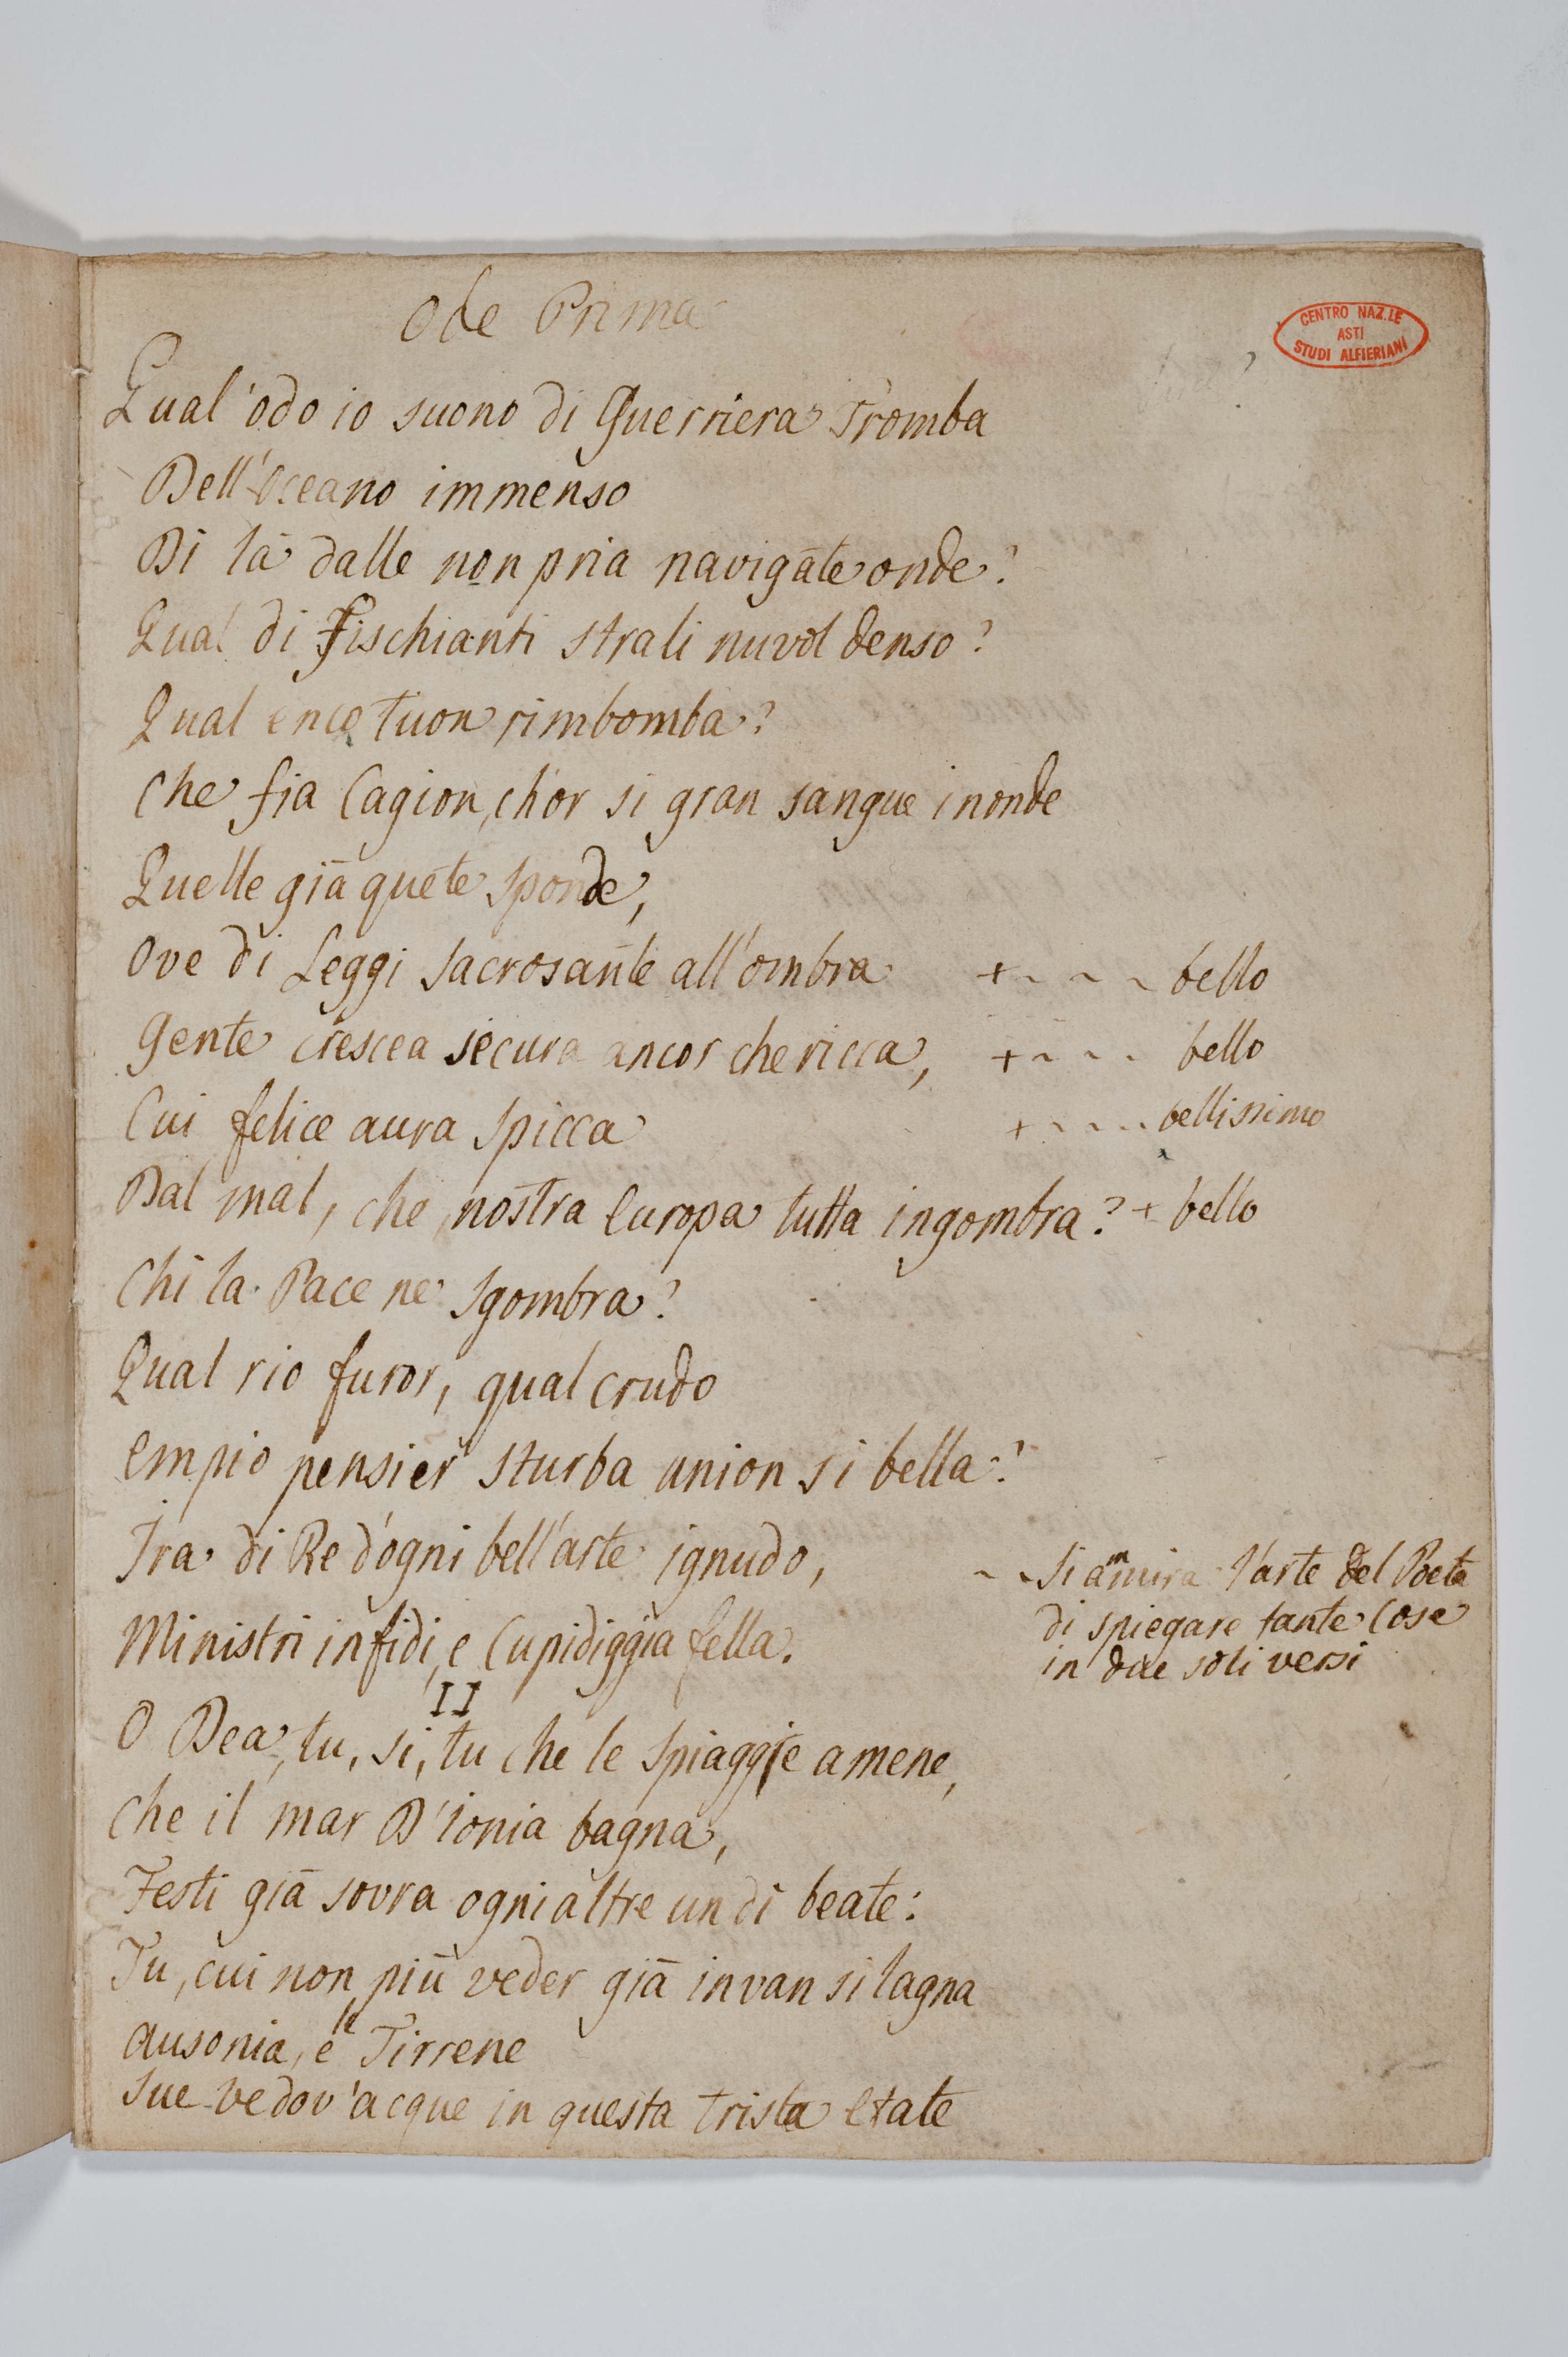 Ode Prima
CENTRO NAZ.LE
ASTI
STUDI ALFIERIANI
Qual' odo io suono di Guerriera Tromba
Dell'Oceano immenso
Di là dalle non pria navigate onde?
Qual di Fischianti strali nuvol denso?
Qual eneo tuon rimbomba?
Che fia Cagion, ch'or si gran sangue inonde
Quelle già quete sponde,
Ove di Leggi sacrosante all'ombra + bello
Gente crescea secura ancor che ricca, + bello
Cui felice aura spicca + bellissimo
Dal mal, che nostra Europa tutta ingombra? + bello
Chi la Pace ne sgombra?
Qual rio furor, qual crudo
Empio pensier sturba union si bella?
Ira di Re d'ogni bell'arte ignudo,
Ministri infidi, e Cupidiggia fella.
Si ammira l'arte del Poeta
di spiegare tante Cose
in due soli versi
II
O Dea, tu, si, tu che le spiaggie amene,
Che il mar D'ionia bagna,
Festi già sovra ogni altre un di beate:
Tu, cui non più veder già invan si lagna
Ausonia, e le Tirrene
Sue vedov'acque in questa trista etate